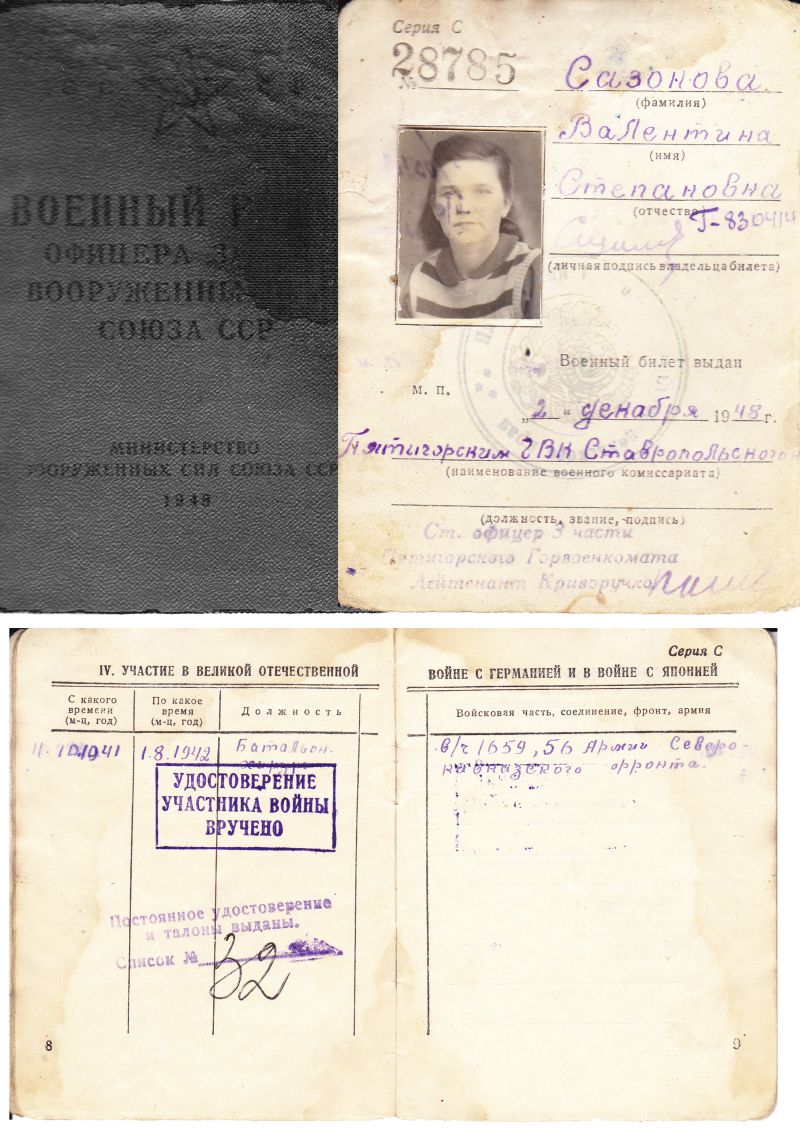 ВОЕННЫЙ
ОФИЦЕРА
ВООРУЖЕННЫ
СОЮЗА ССР
МИНИСТЕРСТВО
ООРУЖЕННЫХ СИЛ СОЮЗА ССР
1948
Серия С
№ 28785
Сазонова
(фамилия)
Валентина
(имя)
Степановна
(отчество)
Г-830414
(личная подпись владельца билета)
Военный билет выдан
М. П.
„2“ декабря 1948 г.
Пятигорским ГВК Ставропольского
(наименование военного комиссариата)
(должность, звание, подпись)
Ст. офицер 3 части
Пятигорского Горвоенкомата
Лейтенант Криворучко
IV. УЧАСТИЕ В ВЕЛИКОЙ ОТЕЧЕСТВЕННОЙ
С какого времени (м-ц, год)
По какое время (м-ц, год)
Должность
10.1941
1.8.1942
Батальон.
УДОСТОВЕРЕНИЕ
УЧАСТНИКА ВОЙНЫ
ВРУЧЕНО
Постоянное удостоверение
и талоны выданы.
Список № 32
8
Серия С
ВОЙНЕ С ГЕРМАНИЕЙ И В ВОЙНЕ С ЯПОНИЕЙ
Войсковая часть, соединение, фронт, армия
в/ч 1659, 56 Армии Северо-
кавказского фронта.
9